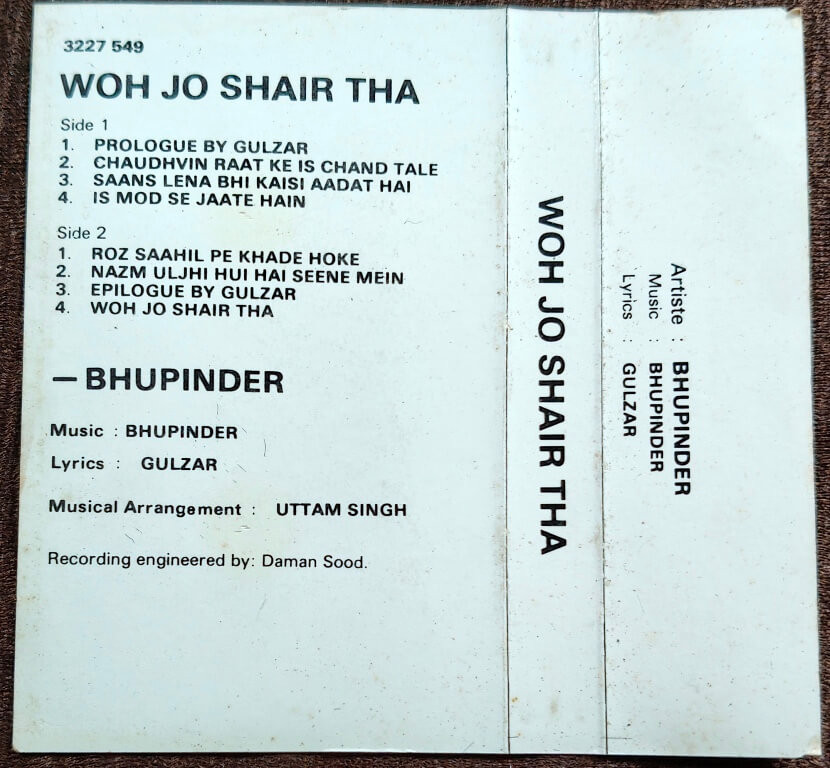 3227 549
WOH JO SHAIR THA
Side 1
1. PROLOGUE BY GULZAR
2. CHAUDHVIN RAAT KE IS CHAND TALE
3. SAANS LENA BHI KAISI AADAT HAI
4. IS MOD SE JAATE HAIN
Side 2
1. ROZ SAAHIL PE KHADE HOKE
2. NAZM ULJHI HUI HAI SEENE MEIN
3. EPILOGUE BY GULZAR
4. WOH JO SHAIR THA
— BHUPINDER
Music : BHUPINDER
Lyrics : GULZAR
Musical Arrangement : UTTAM SINGH
Recording engineered by: Daman Sood.
WOH JO SHAIR THA
Artiste : BHUPINDER
Music : BHUPINDER
Lyrics : GULZAR